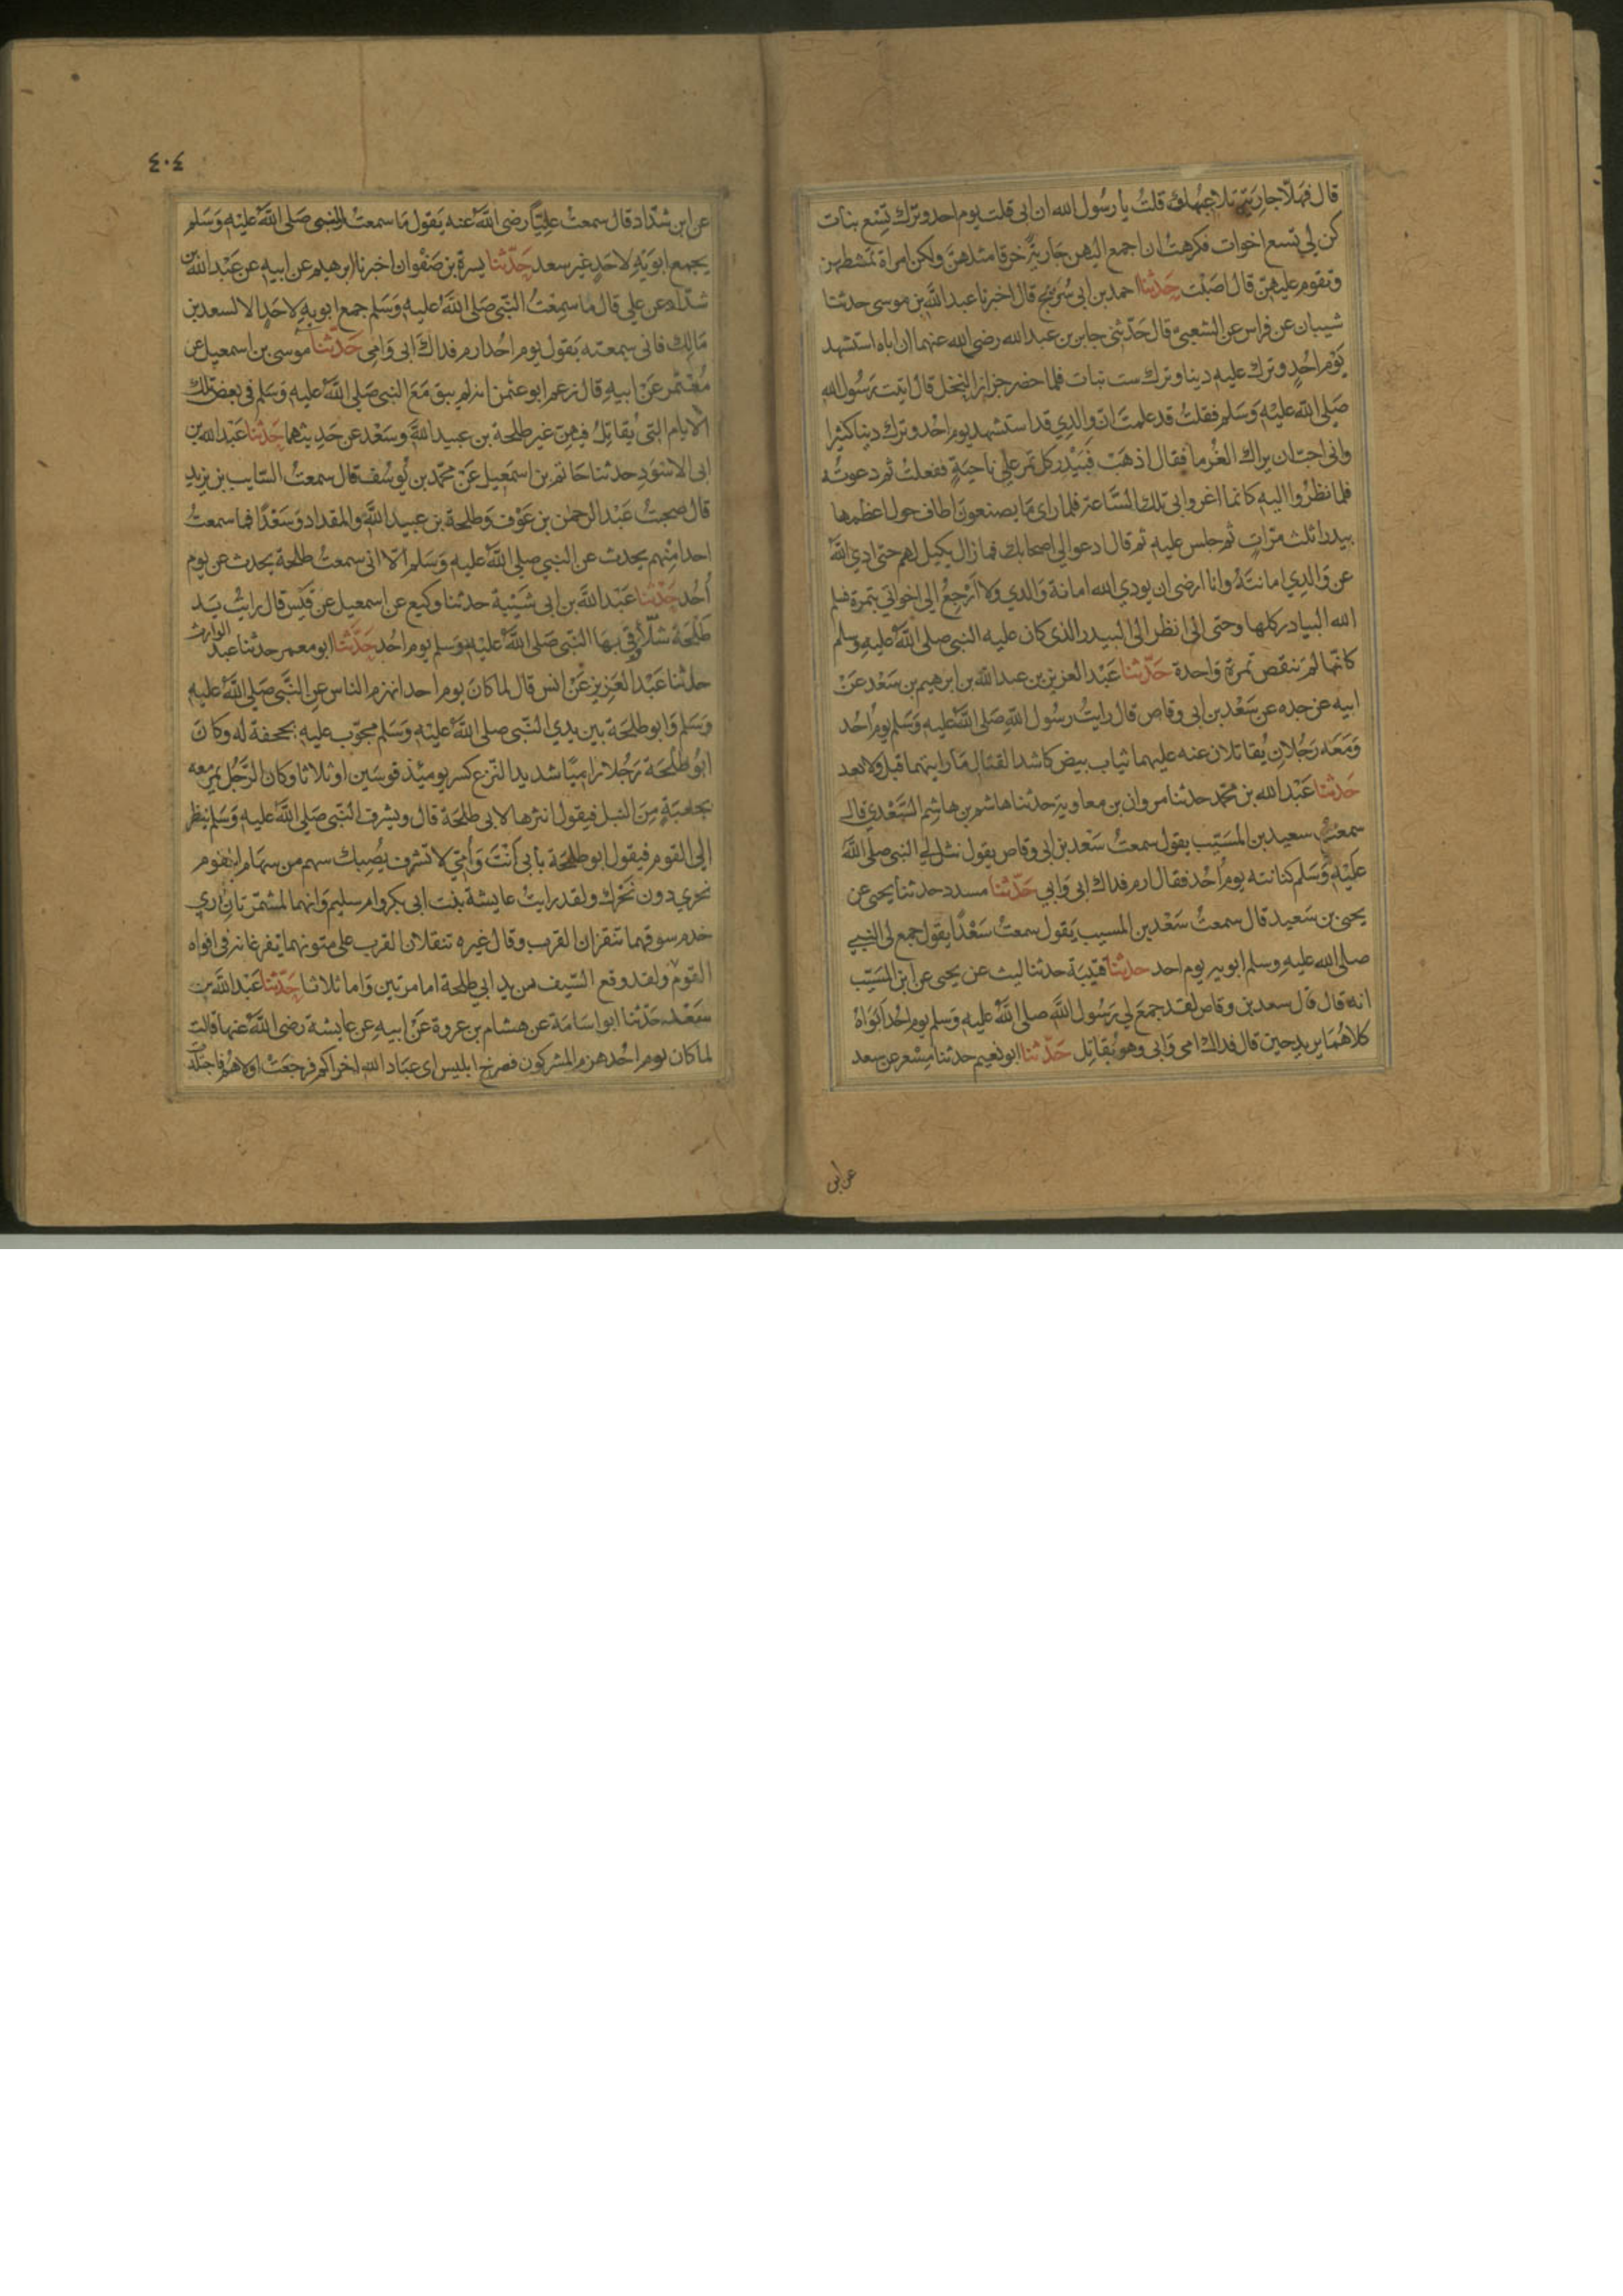 قال فهلا جارية تلاعبك قلت يا رسول الله ان ابى قتل يوم احد وترك تسع بنات
كن لي تسع اخوات فكرهت ان اجمع اليهن جارية خرقا مثلهن ولكن امراة تمشطهن
وتقوم عليهن قال اصبت حدثنا احمد بن ابى سريج قال اخبرنا عبيد الله بن موسى حدثنا
شيبان عن فراس عن الشعبى قال حدثنى جابر بن عبد الله رضى الله عنهما ان اباه استشهد
يوم احد وترك عليه دينا وترك ست بنات فلما حضر جزاز النخل قال اتيت رسول الله
صلى الله عليه وسلم فقلت قد علمت ان والدي قد استشهد يوم احد وترك دينا كثيرا
وانى احب ان يراك الغرما فقال اذهب فبيدر كل تمر على ناحية ففعلت ثم دعوته
فلما نظروا اليه كانما اغروا بى تلك الساعة فلما راى ما يصنعون اطاف حول اعظمها
بيدرا ثلث مرات ثم جلس عليه ثم قال ادعوا لى اصحابك فما زال يكيل لهم حتى ادي الله
عن والدي امانته وانا ارضى ان يودي الله امانة والدي ولا ارجع الى اخواتي بتمرة فسلم
الله البيادر كلها وحتى انى انظر الى البيدر الذى كان عليه النبى صلى الله عليه وسلم
كانها لم تنقص تمرة واحدة حدثنا عبد العزيز بن عبد الله بن ابرهيم بن سعد عن
ابيه عن جده عن سعد بن ابى وقاص قال رايت رسول الله صلى الله عليه وسلم يوم احد
ومعه رجلان يقاتلان عنه عليهما ثياب بيض كاشد القتال ما رايتهما قبل ولا بعد
حدثنا عبد الله بن محمد حدثنا مروان بن معاوية حدثنا هاشم بن هاشم السعدي قال
سمعت سعيد بن المسيب يقول سمعت سعد بن ابى وقاص يقول نثل لي النبى صلى الله
عليه وسلم كنانته يوم احد فقال ارم فداك ابى وامى حدثنا مسدد حدثنا يحيى عن
يحيى بن سعيد قال سمعت سعد بن المسيب يقول سمعت سعدا يقول جمع لى النبى
صلى الله عليه وسلم ابويه يوم احد حدثنا قتيبة حدثنا ليث عن يحيى عن ابن المسيب
انه قال قال سعد بن وقاص لقد جمع لي رسول الله صلى الله عليه وسلم يوم احد ابواه
كلاهما يريد حين قال فداك امى وابى وهو يقاتل حدثنا ابو نعيم حدثنا مسعر عن سعد
عن ابن
٤٠٤
عن ابن شداد قال سمعت عليا رضى الله عنه يقول ما سمعت النبى صلى الله عليه وسلم
يجمع ابويه لاحد غير سعد حدثنا يسرة بن صفوان اخبرنا ابرهيم عن ابيه عن عبد الله بن
شداد عن على قال ما سمعت النبى صلى الله عليه وسلم جمع ابويه لاحد الا لسعد بن
مالك فانى سمعته يقول يوم احد ارم فداك ابى وامى حدثنا موسى بن اسمعيل عن
معتمر عن ابيه قال زعم ابو عثمن انه لم يبق مع النبى صلى الله عليه وسلم فى بعض تلك
الايام التى يقاتل فيهن غير طلحة بن عبيد الله وسعد عن حديثهما حدثنا عبد الله بن
ابى الاسود حدثنا حاتم بن اسمعيل عن محمد بن يوسف قال سمعت السايب بن يزيد
قال صحبت عبد الرحمن بن عوف وطلحة بن عبيد الله والمقداد وسعدا فما سمعت
احدا منهم يحدث عن النبى صلى الله عليه وسلم الا انى سمعت طلحة يحدث عن يوم
احد حدثنا عبد الله بن ابى شيبة حدثنا وكيع عن اسمعيل عن قيس قال رايت يد
طلحة شلا وقى بها النبى صلى الله عليه وسلم يوم احد حدثنا ابو معمر حدثنا عبد الوارث
حدثنا عبد العزيز عن انس قال لما كان يوم احد انهزم الناس عن النبى صلى الله عليه
وسلم وابو طلحة بين يدي النبى صلى الله عليه وسلم مجوب عليه بحجفة له وكان
ابو طلحة رجلا راميا شديد النزع كسر يومئذ قوسين او ثلاثا وكان الرجل يمر معه
بجعبة من النبل فيقول انثرها لابى طلحة قال ويشرف النبى صلى الله عليه وسلم ينظر
الى القوم فيقول ابو طلحة بابى انت وامي لا تشرف يصبك سهم من سهام القوم
نحري دون نحرك ولقد رايت عايشة بنت ابى بكر وام سليم وانهما لمشمرتان اري
خدم سوقهما تنقزان القرب وقال غيره تنقلان القرب على متونهما تفرغانه فى افواه
القوم ولقد وقع السيف من يد ابى طلحة اما مرتين واما ثلاثا حدثنا عبد الله بن
سعد حدثنا ابو اسامة عن هشام بن عروة عن ابيه عن عايشة رضى الله عنها قالت
لما كان يوم احد هزم المشركون فصرخ ابليس اى عباد الله اخراكم فرجعت اولاهم فاجتلدت